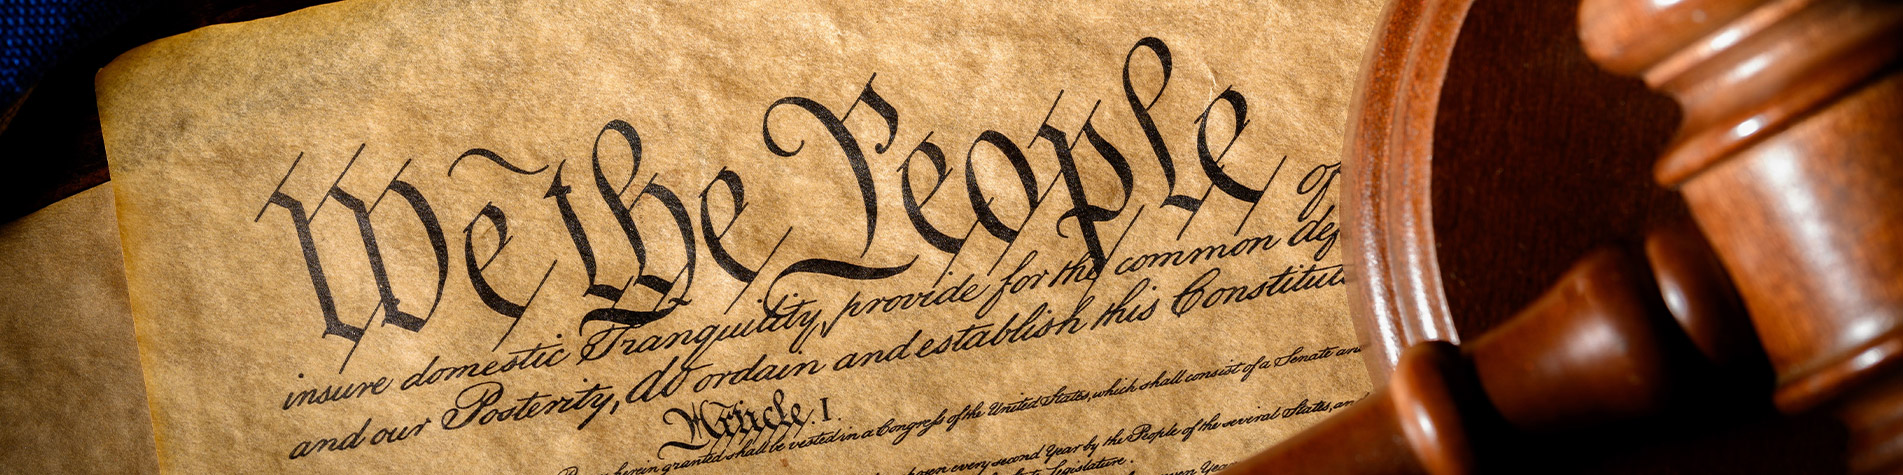 We the People of
insure domestic Tranquility, provide for the common def
and our Posterity, do ordain and establish this Constitut
Article. I.
herein granted shall be vested in a Congress of the United States, which shall consist of a Senate and
chosen every second Year by the People of the several States, and
Legislature.
Year